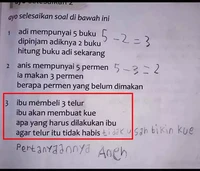 ayo selesaikan soal di bawah ini
1 adi mempunyai 5 buku
dipinjam adiknya 2 buku 5-2=3
hitung buku adi sekarang
2 anis mempunyai 5 permen 5-3=2
ia makan 3 permen
berapa permen yang belum dimakan
3 ibu membeli 3 telur
ibu akan membuat kue
apa yang harus dilakukan ibu
agar telur itu tidak habis tidak usah bikin kue
Pertanyaannya Aneh